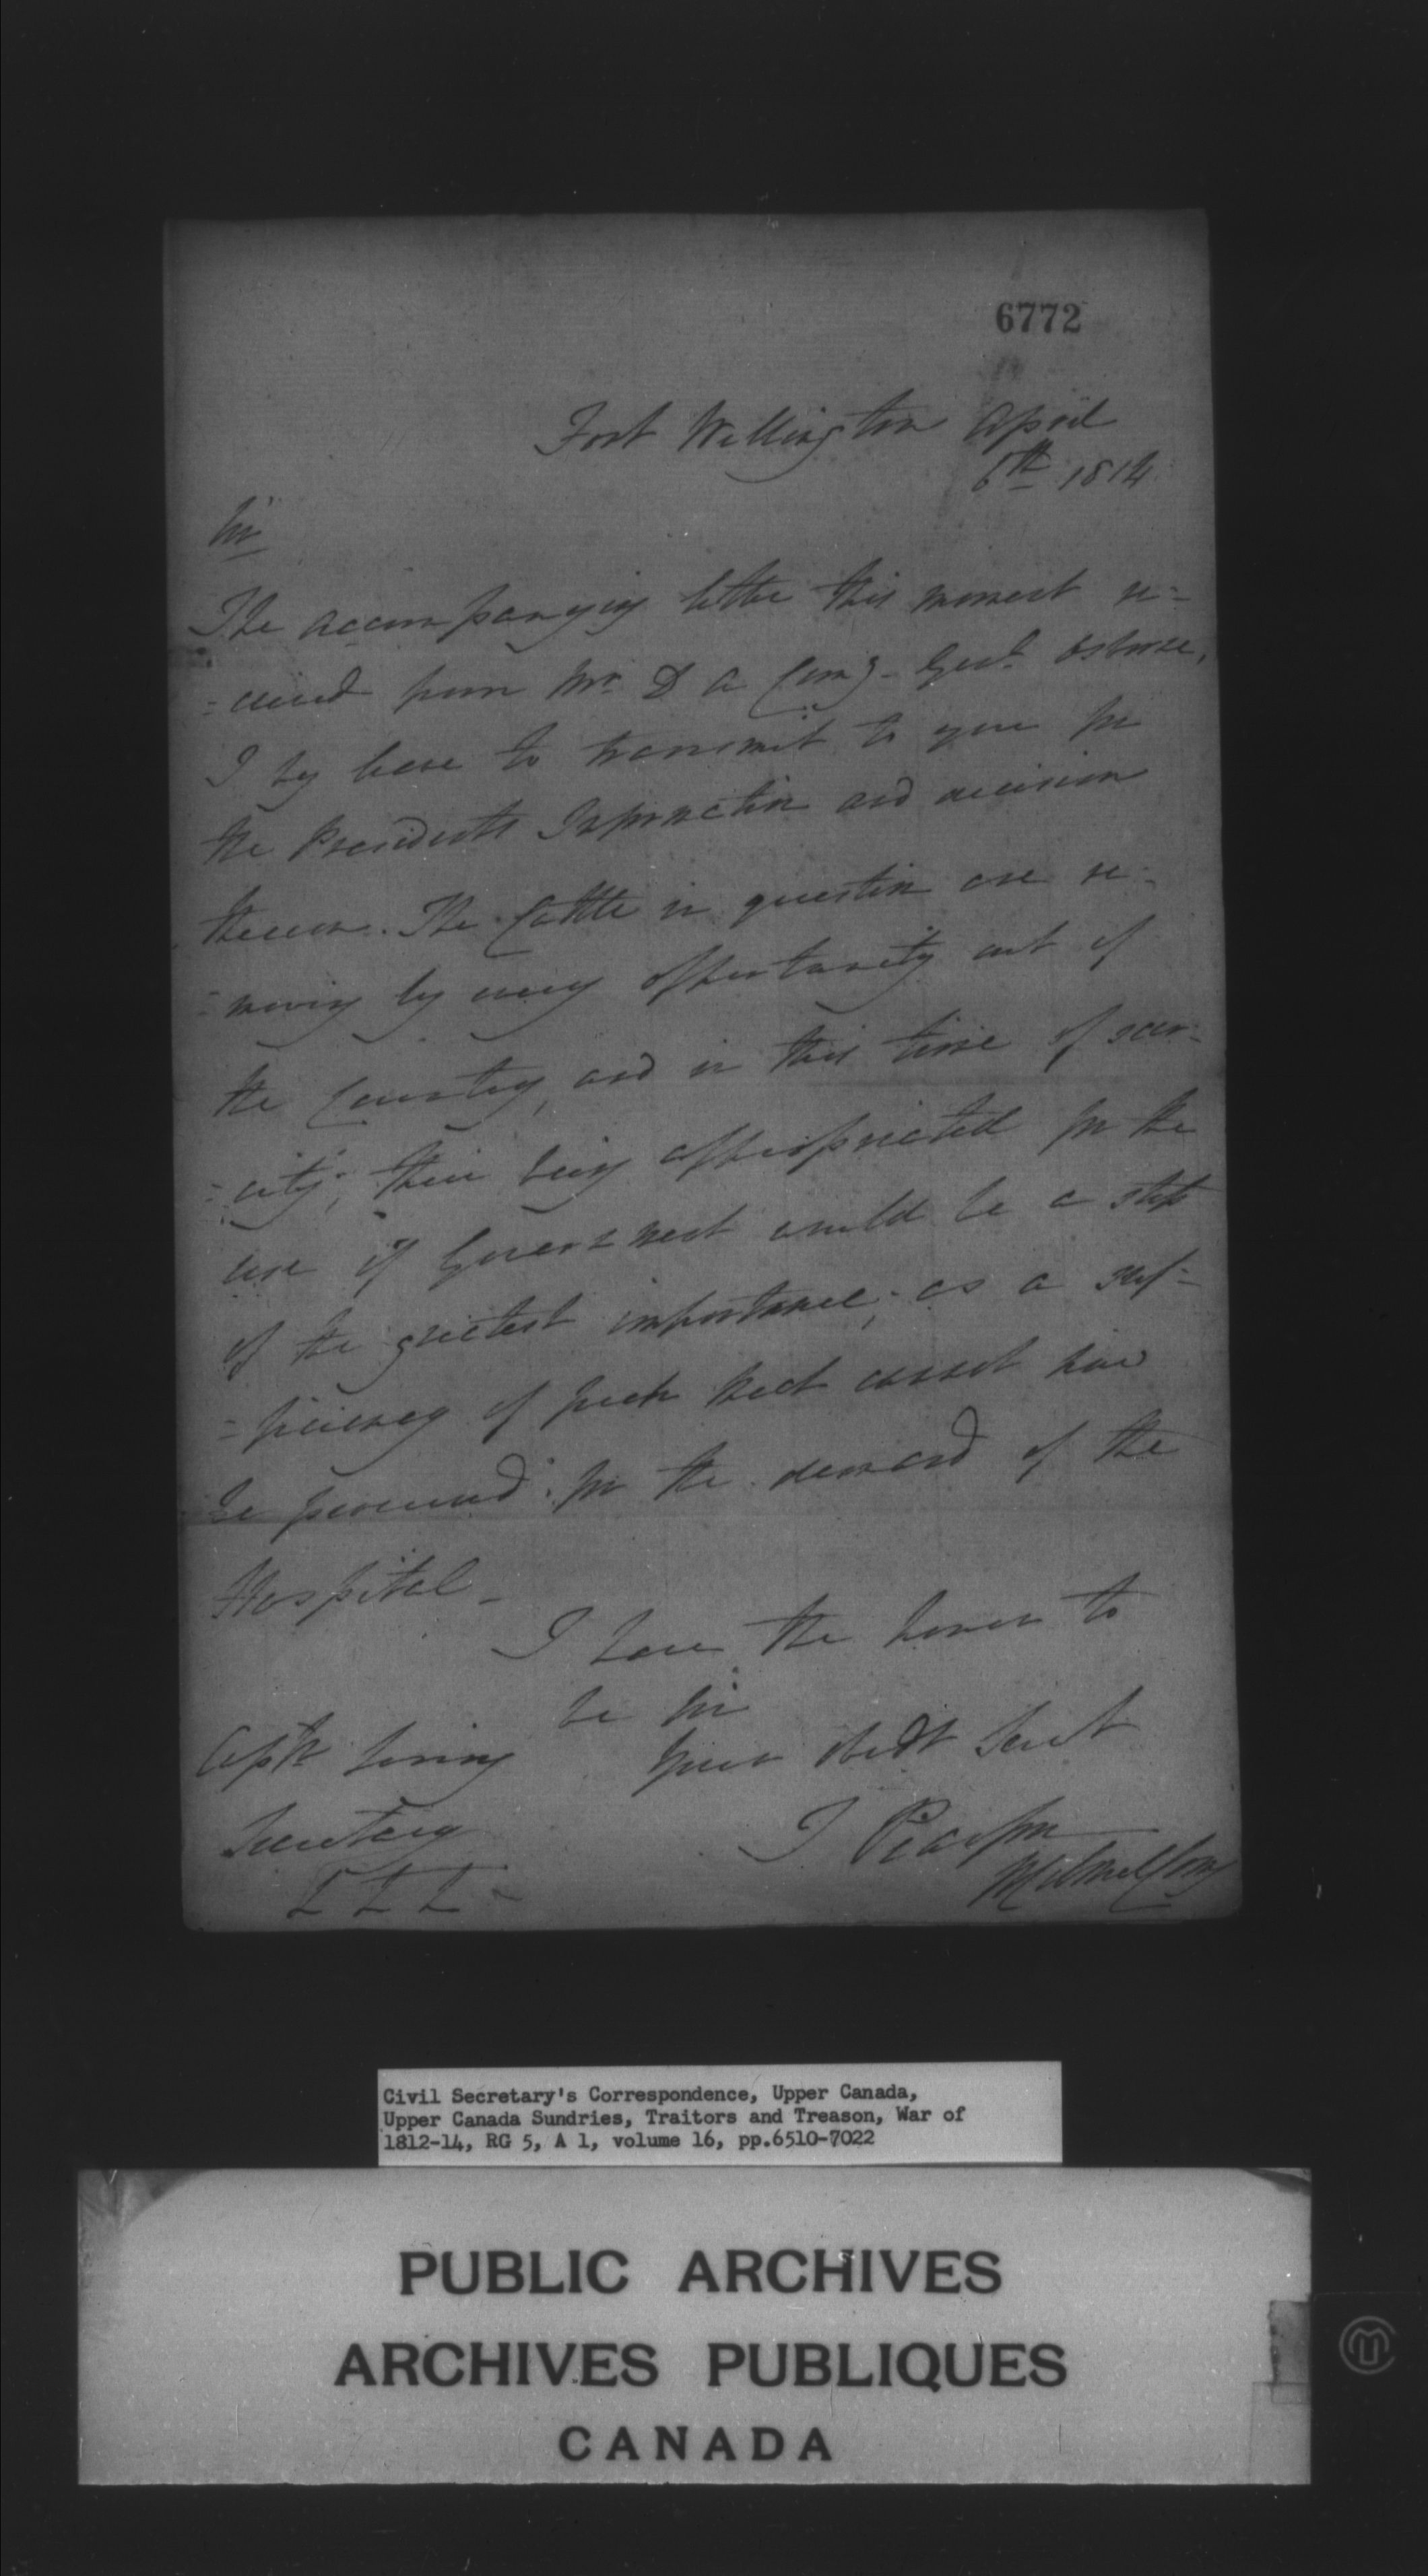 6772
Fort Wellington April
6th 1814
Sir
The accompanying letter this moment re=
=ceived from Mr. D A Comy. Genl. Osborne,
I beg leave to transmit to you for
the Presidents Information and decision
thereon. The Cattle in question are re=
=moving by every opportunity out of
the Country, and in this time of scar=
=city, their being appropriated for the
use of Government would be a step
of the greatest importance; as a suf=
=ficiency of fresh meat cannot now
be procured for the demand of the
Hospital_
I have the honor to
be Sir
Captn Loring
your obedt Servt
Secretary
T Pearson
Lt Col
Civil Secretary's Correspondence, Upper Canada,
Upper Canada Sundries, Traitors and Treason, War of
1812-14, RG 5, A 1, volume 16, pp.6510-7022
PUBLIC ARCHIVES
ARCHIVES PUBLIQUES
CANADA